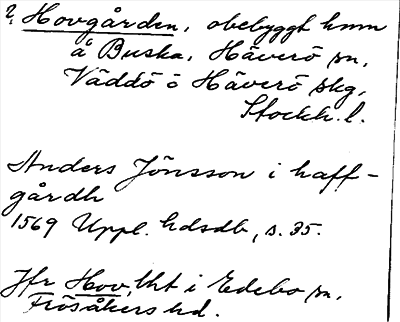 ? Hovgården, obebyggt hmn
å Buska, Häverö sn,
Väddö o Häverö skg,
Stockh. l.
Anders Jönsson i haff-
gårdh
1569 Uppl. hdsdb, s. 35.
Jfr Hov, tht i Edebo sn,
Frösåkers hd.